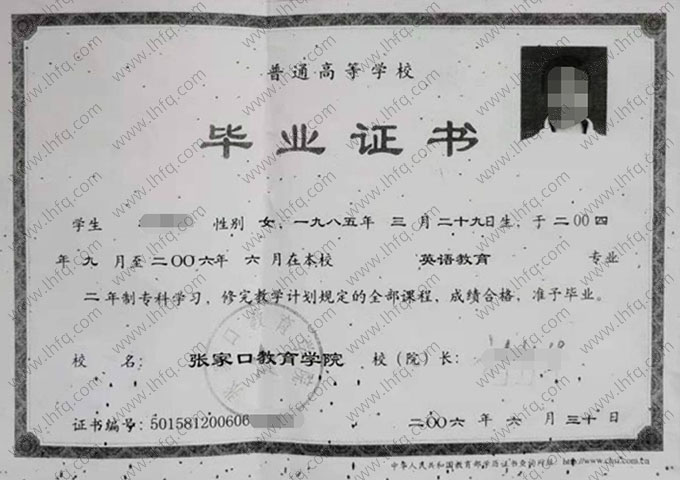 普通高等学校
毕业证书
学生 性别 女，一九八五年 三 月 二十九日生，于二00四
年 九 月至二00六年 六 月在本校 英语教育 专业
二 年制专科学习，修完教学计划规定的全部课程，成绩合格，准予毕业。
校 名： 张家口教育学院 校（院）长：
证书编号：501581200606 二00六 年 六 月 三十 日
中华人民共和国教育部学历证书查询网址：http://www.chsi.com.cn
www.lhfq.com